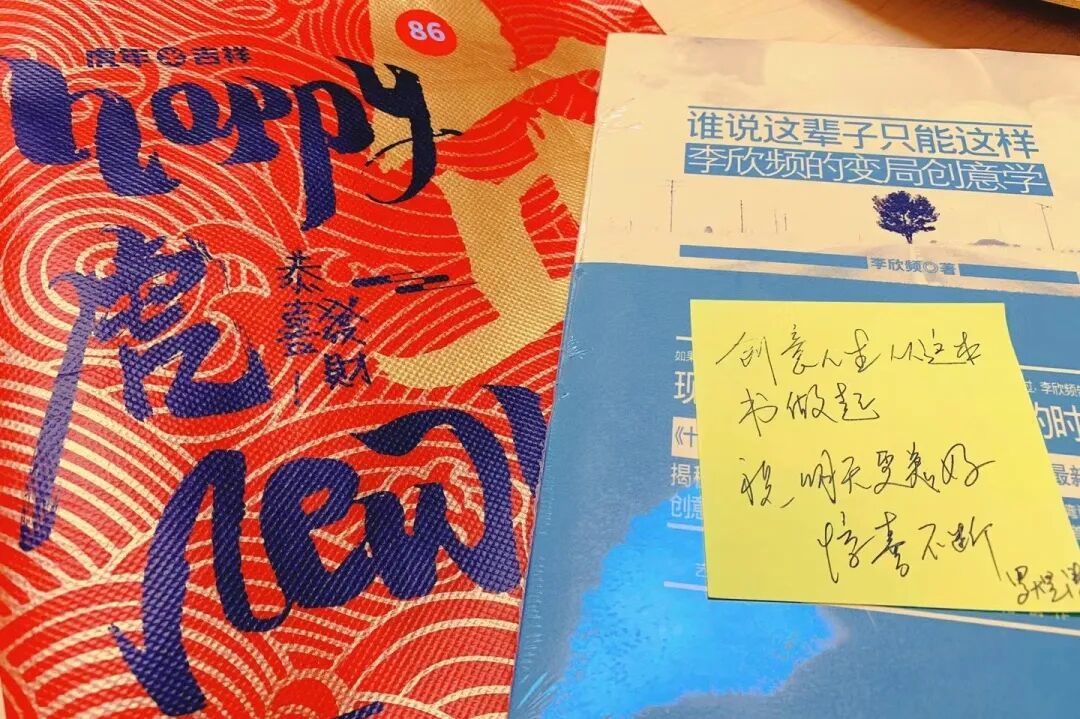 86
虎年吉祥
happy
虎
恭喜
發財!
new
谁说这辈子只能这样
李欣频的变局创意学
李欣频◎著
如果
现
《十
揭秘
创意
艺
过,李欣频
的时
最新
创意人生从这本
书做起
祝,明天更美好
惊喜不断